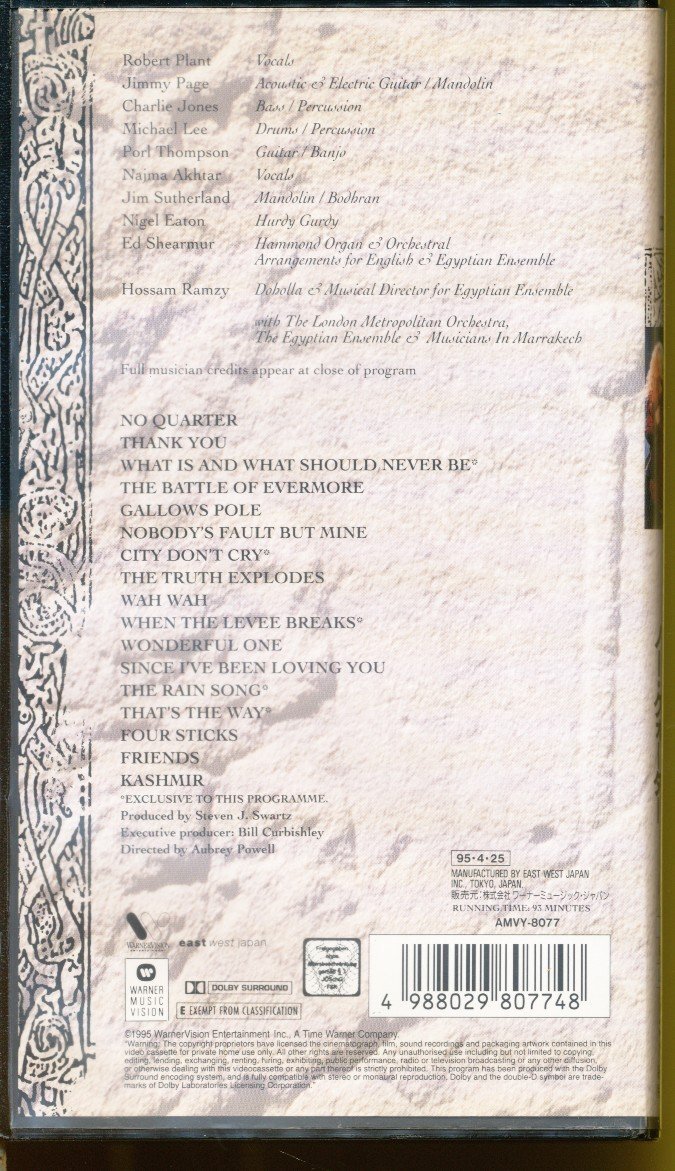 Robert Plant Vocals
Jimmy Page Acoustic & Electric Guitar / Mandolin
Charlie Jones Bass / Percussion
Michael Lee Drums / Percussion
Porl Thompson Guitar / Banjo
Najma Akhtar Vocals
Jim Sutherland Mandolin / Bodhran
Nigel Eaton Hurdy Gurdy
Ed Shearmur Hammond Organ & Orchestral
Arrangements for English & Egyptian Ensemble
Hossam Ramzy Doholla & Musical Director for Egyptian Ensemble
with The London Metropolitan Orchestra,
The Egyptian Ensemble & Musicians In Marrakech
Full musician credits appear at close of program
NO QUARTER
THANK YOU
WHAT IS AND WHAT SHOULD NEVER BE*
THE BATTLE OF EVERMORE
GALLOWS POLE
NOBODY'S FAULT BUT MINE
CITY DON'T CRY*
THE TRUTH EXPLODES
WAH WAH
WHEN THE LEVEE BREAKS*
WONDERFUL ONE
SINCE I'VE BEEN LOVING YOU
THE RAIN SONG*
THAT'S THE WAY*
FOUR STICKS
FRIENDS
KASHMIR
*EXCLUSIVE TO THIS PROGRAMME.
Produced by Steven J. Swartz
Executive producer: Bill Curbishley
Directed by Aubrey Powell
95・4・25
MANUFACTURED BY EAST WEST JAPAN
INC., TOKYO, JAPAN.
販売元:株式会社ワーナーミュージック・ジャパン
RUNNING TIME: 93 MINUTES
AMVY-8077
WARNERVISION
east west japan
WARNER
MUSIC
VISION
DOLBY SURROUND
E EXEMPT FROM CLASSIFICATION
4 988029 807748
©1995 WarnerVision Entertainment Inc., A Time Warner Company.
"Warning: The copyright proprietors have licensed the cinematograph, film, sound recordings and packaging artwork contained in this
video cassette for private home use only. All other rights are reserved. Any unauthorised use including but not limited to copying,
editing, lending, exchanging, renting, hiring, exhibiting, public performance, radio or television broadcasting or any other diffusion,
or otherwise dealing with this videocassette or any part thereof is strictly prohibited. This program has been produced with the Dolby
Surround encoding system, and is fully compatible with stereo or monaural reproduction. Dolby and the double-D symbol are trade-
marks of Dolby Laboratories Licensing Corporation."